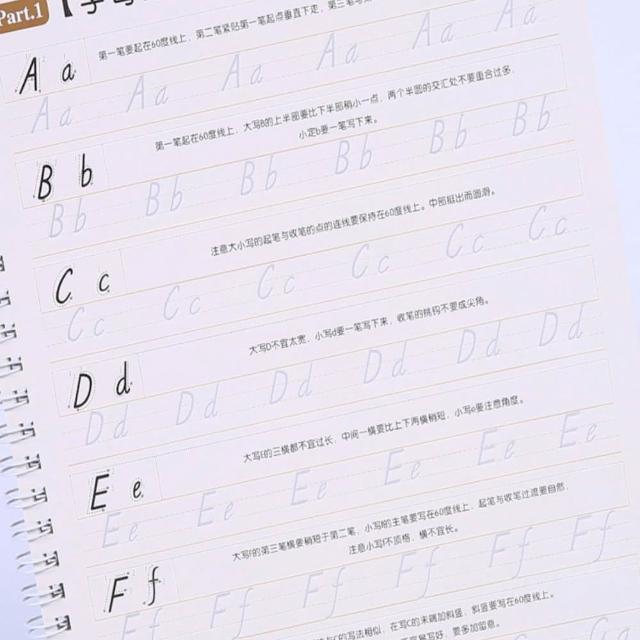 Part.1 【字母
第一笔要起在60度线上，第二笔紧贴第一笔起点垂直下走，第三笔
A a
Aa Aa Aa Aa Aa Aa
第一笔起在60度线上，大写B的上半部要比下半部稍小一点，两个半圆的交汇处不要重合过多，
小定b要一笔写下来。
B b
Bb Bb Bb Bb Bb Bb
注意大小写的起笔与收笔的点的连线要保持在60度线上。中部凸出而圆滑。
C c
Cc Cc Cc Cc Cc Cc
大写D不宜太宽，小写d要一笔写下来，收笔的挑钩不要成尖角。
D d
Dd Dd Dd Dd Dd Dd
大写E的三横都不宜过长，中间一横要比上下两横稍短，小写e要注意角度。
E e
Ee Ee Ee Ee Ee Ee
大写F的第三笔横要稍短于第二笔，小写f的主笔要写在60度线上，起笔与收笔过渡要自然，
注意小写f不顶格，横不宜长。
F f
Ff Ff Ff Ff Ff Ff
与C的写法相似，在写C的末端加斜竖，斜竖要写在60度线上。
写好，要多加留意。